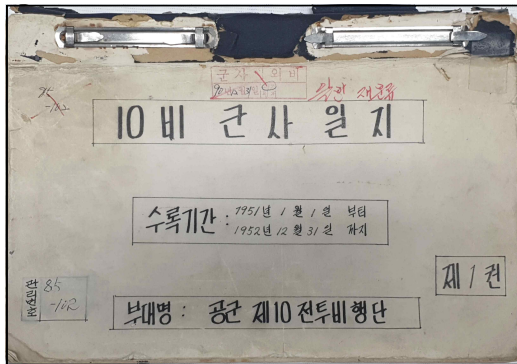 85
-102
10비 군사일지
수록기간 : 1951년 1월 1일 부터
1952년 12월 31일 까지
제 1 권
85
-102
부대명 : 공군 제10전투비행단